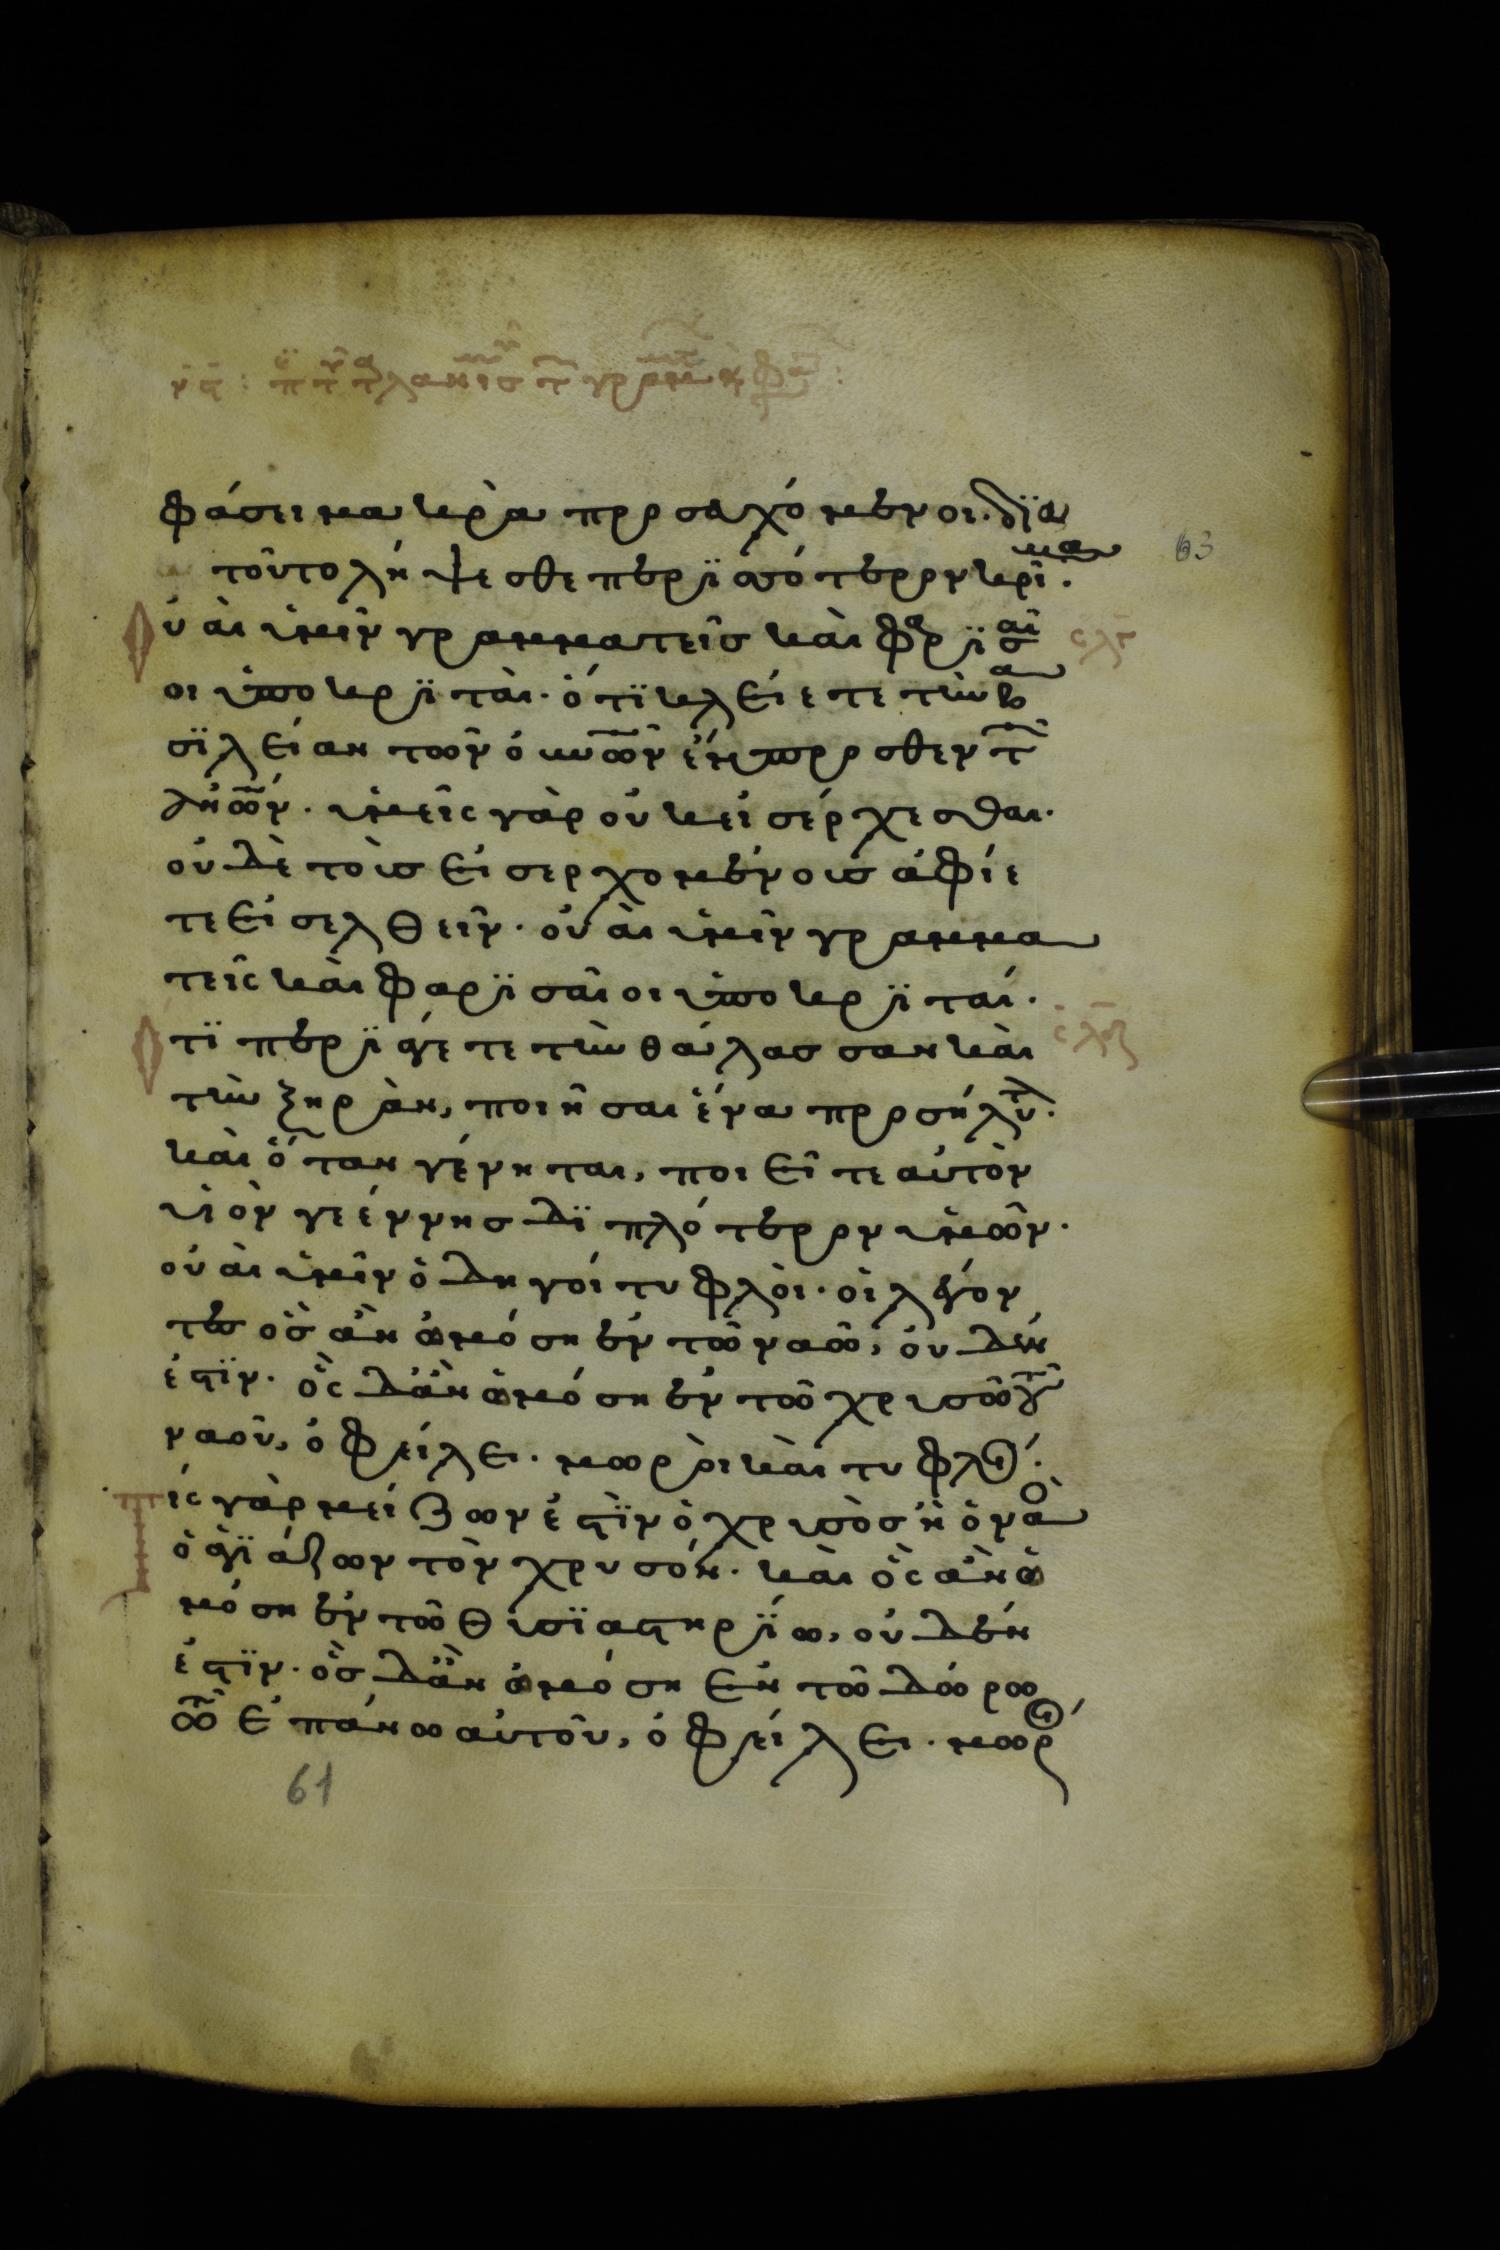 φάσει μακρὰ προσευχόμενοι. δϊα
τοῦτο λήψεσθε περϊσσότερον κρῖμα.
ὀυὰι ὑμῖν γραμματεῖσ κὰι φαρϊσαῖ
οι ὑποκρϊτὰι. ὅτϊ κλείετε τὴν βα
σϊλείαν τῶν ὀυνῶν ἔμπροσθεν τῶν
ἀνῶν. ὑμεῖς γὰρ οὐκ εἰσέρχεσθαι.
οὐδὲ τοὺσ εἰσερχομένουσ ἀφίε
τε εἰσελθεῖν. οὐὰι ὑμῖν γραμμα
τεῖς κὰι φαρϊσαῖοι ὑποκρϊταί.
ὅτϊ περϊάγετε τὴν θάλασσαν κὰι
τὴν ξηρὰν, ποιῆσαι ἕνα προσήλυτ.
κὰι ὅταν γένηται, ποιεῖτε αὐτὸν
ὑιὸν γεέννησ δϊπλότερον ὑμῶν.
οὐὰι ὑμῖν ὁδηγοί τυφλὸι. ὁι λέγον
τεσ ὃσ ἂν ὀμόση ἐν τῶ ναῶ, οὐδέν
ἐστϊν. ὃς δἂν ὀμόση ἐν τῶ χρυσῶ τοῦ
ναοῦ, ὀφείλει. μωρὸι κὰι τυφλοί.
Τίς γὰρ μείζων ἐστϊν ὁ χρυσὸσ ἢ ὁ ναὸ
ὁ ἁγϊάζων τὸν χρυσόν. κὰι ὃς ἂν ὀ
μόση ἐν τῶ θυσϊαστηρϊω, οὐδέν
ἐστϊν. ὃσ δἂν ὀμόση ἐν τῶ δώρω
τῶ ἐπάνω αὐτοῦ, ὀφείλει. μωροί
63
61